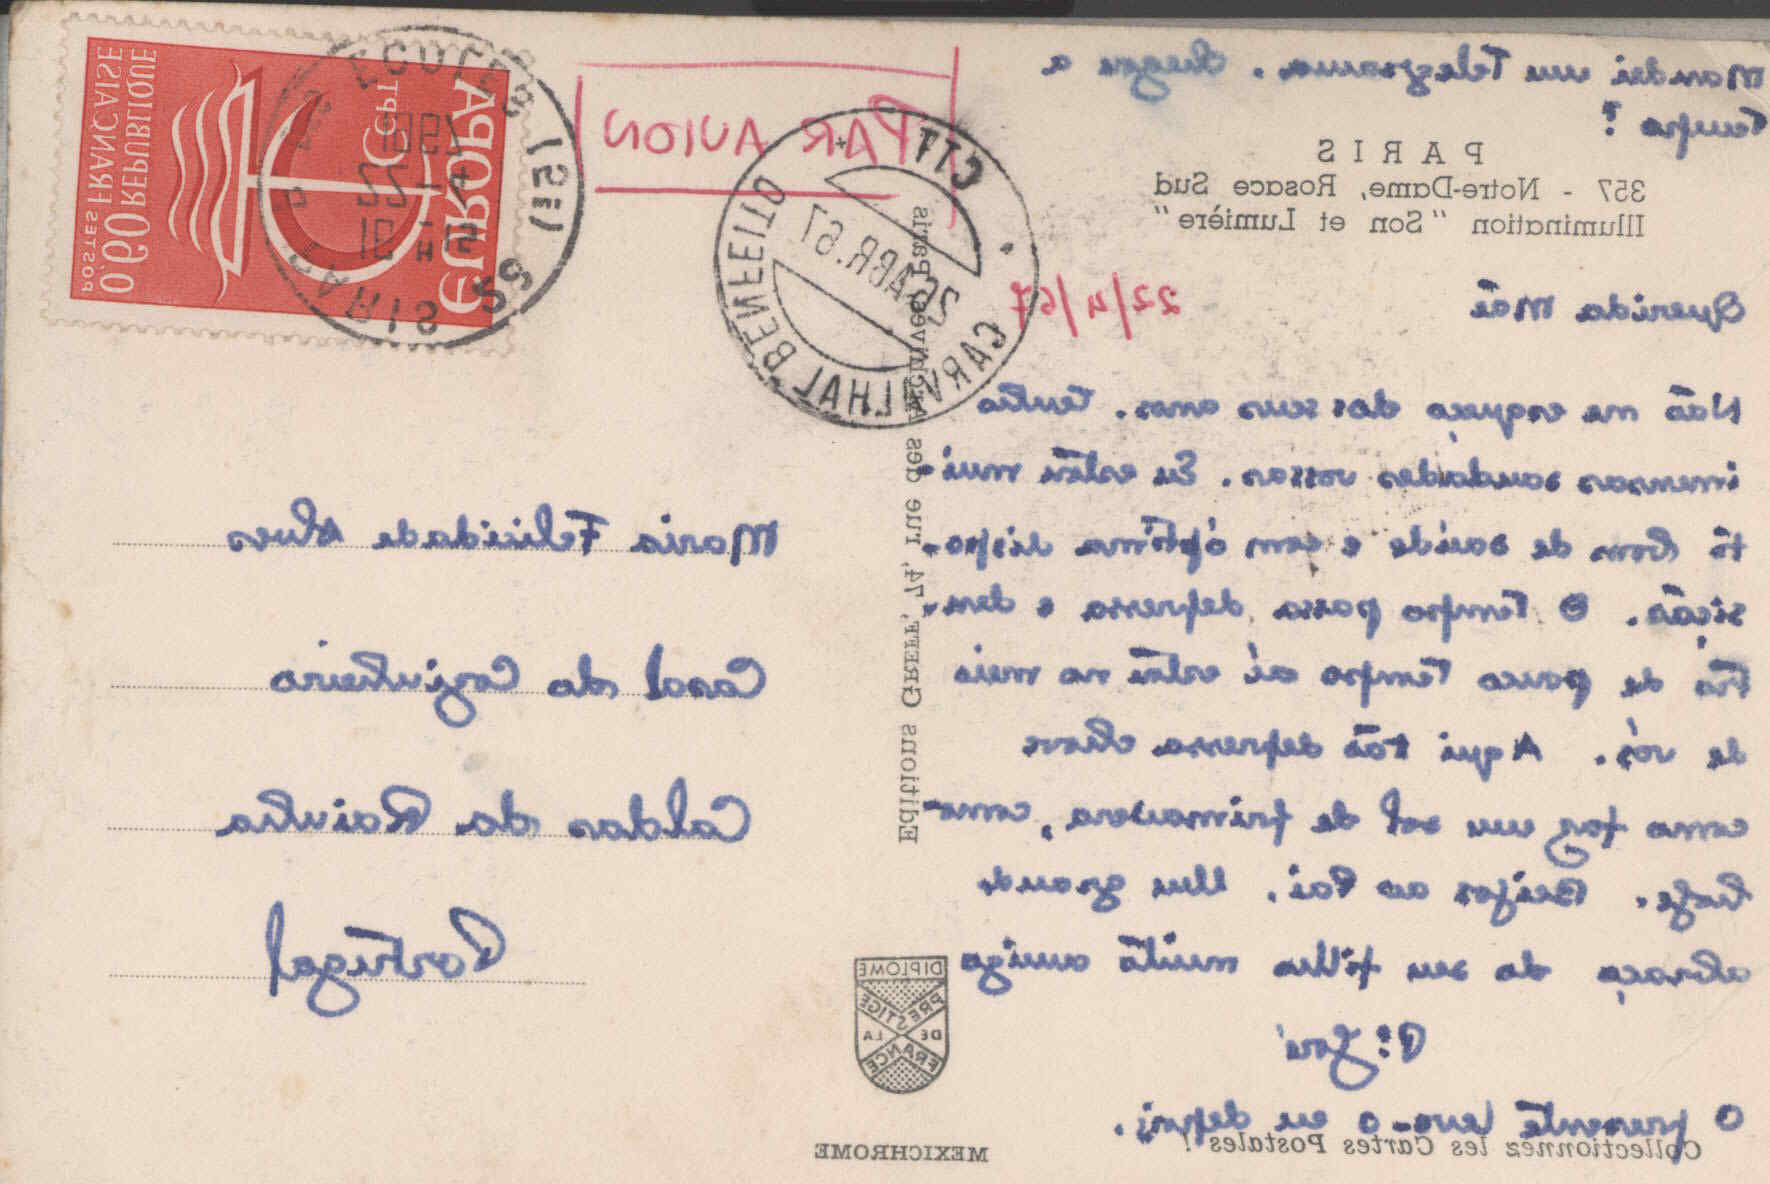 Mandei um Telegrama. Chegou a
Tempo?
PARIS
357 - Notre-Dame, Rosace Sud
Illumination "Son et Lumière"
22/4/67
Querida Mãe
Não me esqueço dos seus anos. Tenho
imensas saudades vossas. Eu estou mui-
to bom de saúde e com óptima dispo-
sição. O Tempo passa depressa e den-
tro de pouco Tempo aí estou no meio
de vós. Aqui tão depressa chove
como faz um sol de primavera, como
hoje. Beijos ao Pai. Um grande
abraço do seu filho muito amigo
P.e José
O presente levo-o eu depois.
Collectionnez les Cartes Postales!
Editions GREFF, 74, rue des Archives, Paris
DIPLOME
PRESTIGE
DE LA
FRANCE
MEXICHROME
PAR AVION
CTT
26.ABR.67
CARVALHAL BENFEITO
EUROPA
CEPT
REPUBLIQUE
FRANÇAISE
0,60
POSTES
PARIS 55
22-4
1967
Maria Felicidade Alves
Casal do Cozinheiro
Caldas da Rainha
Portugal